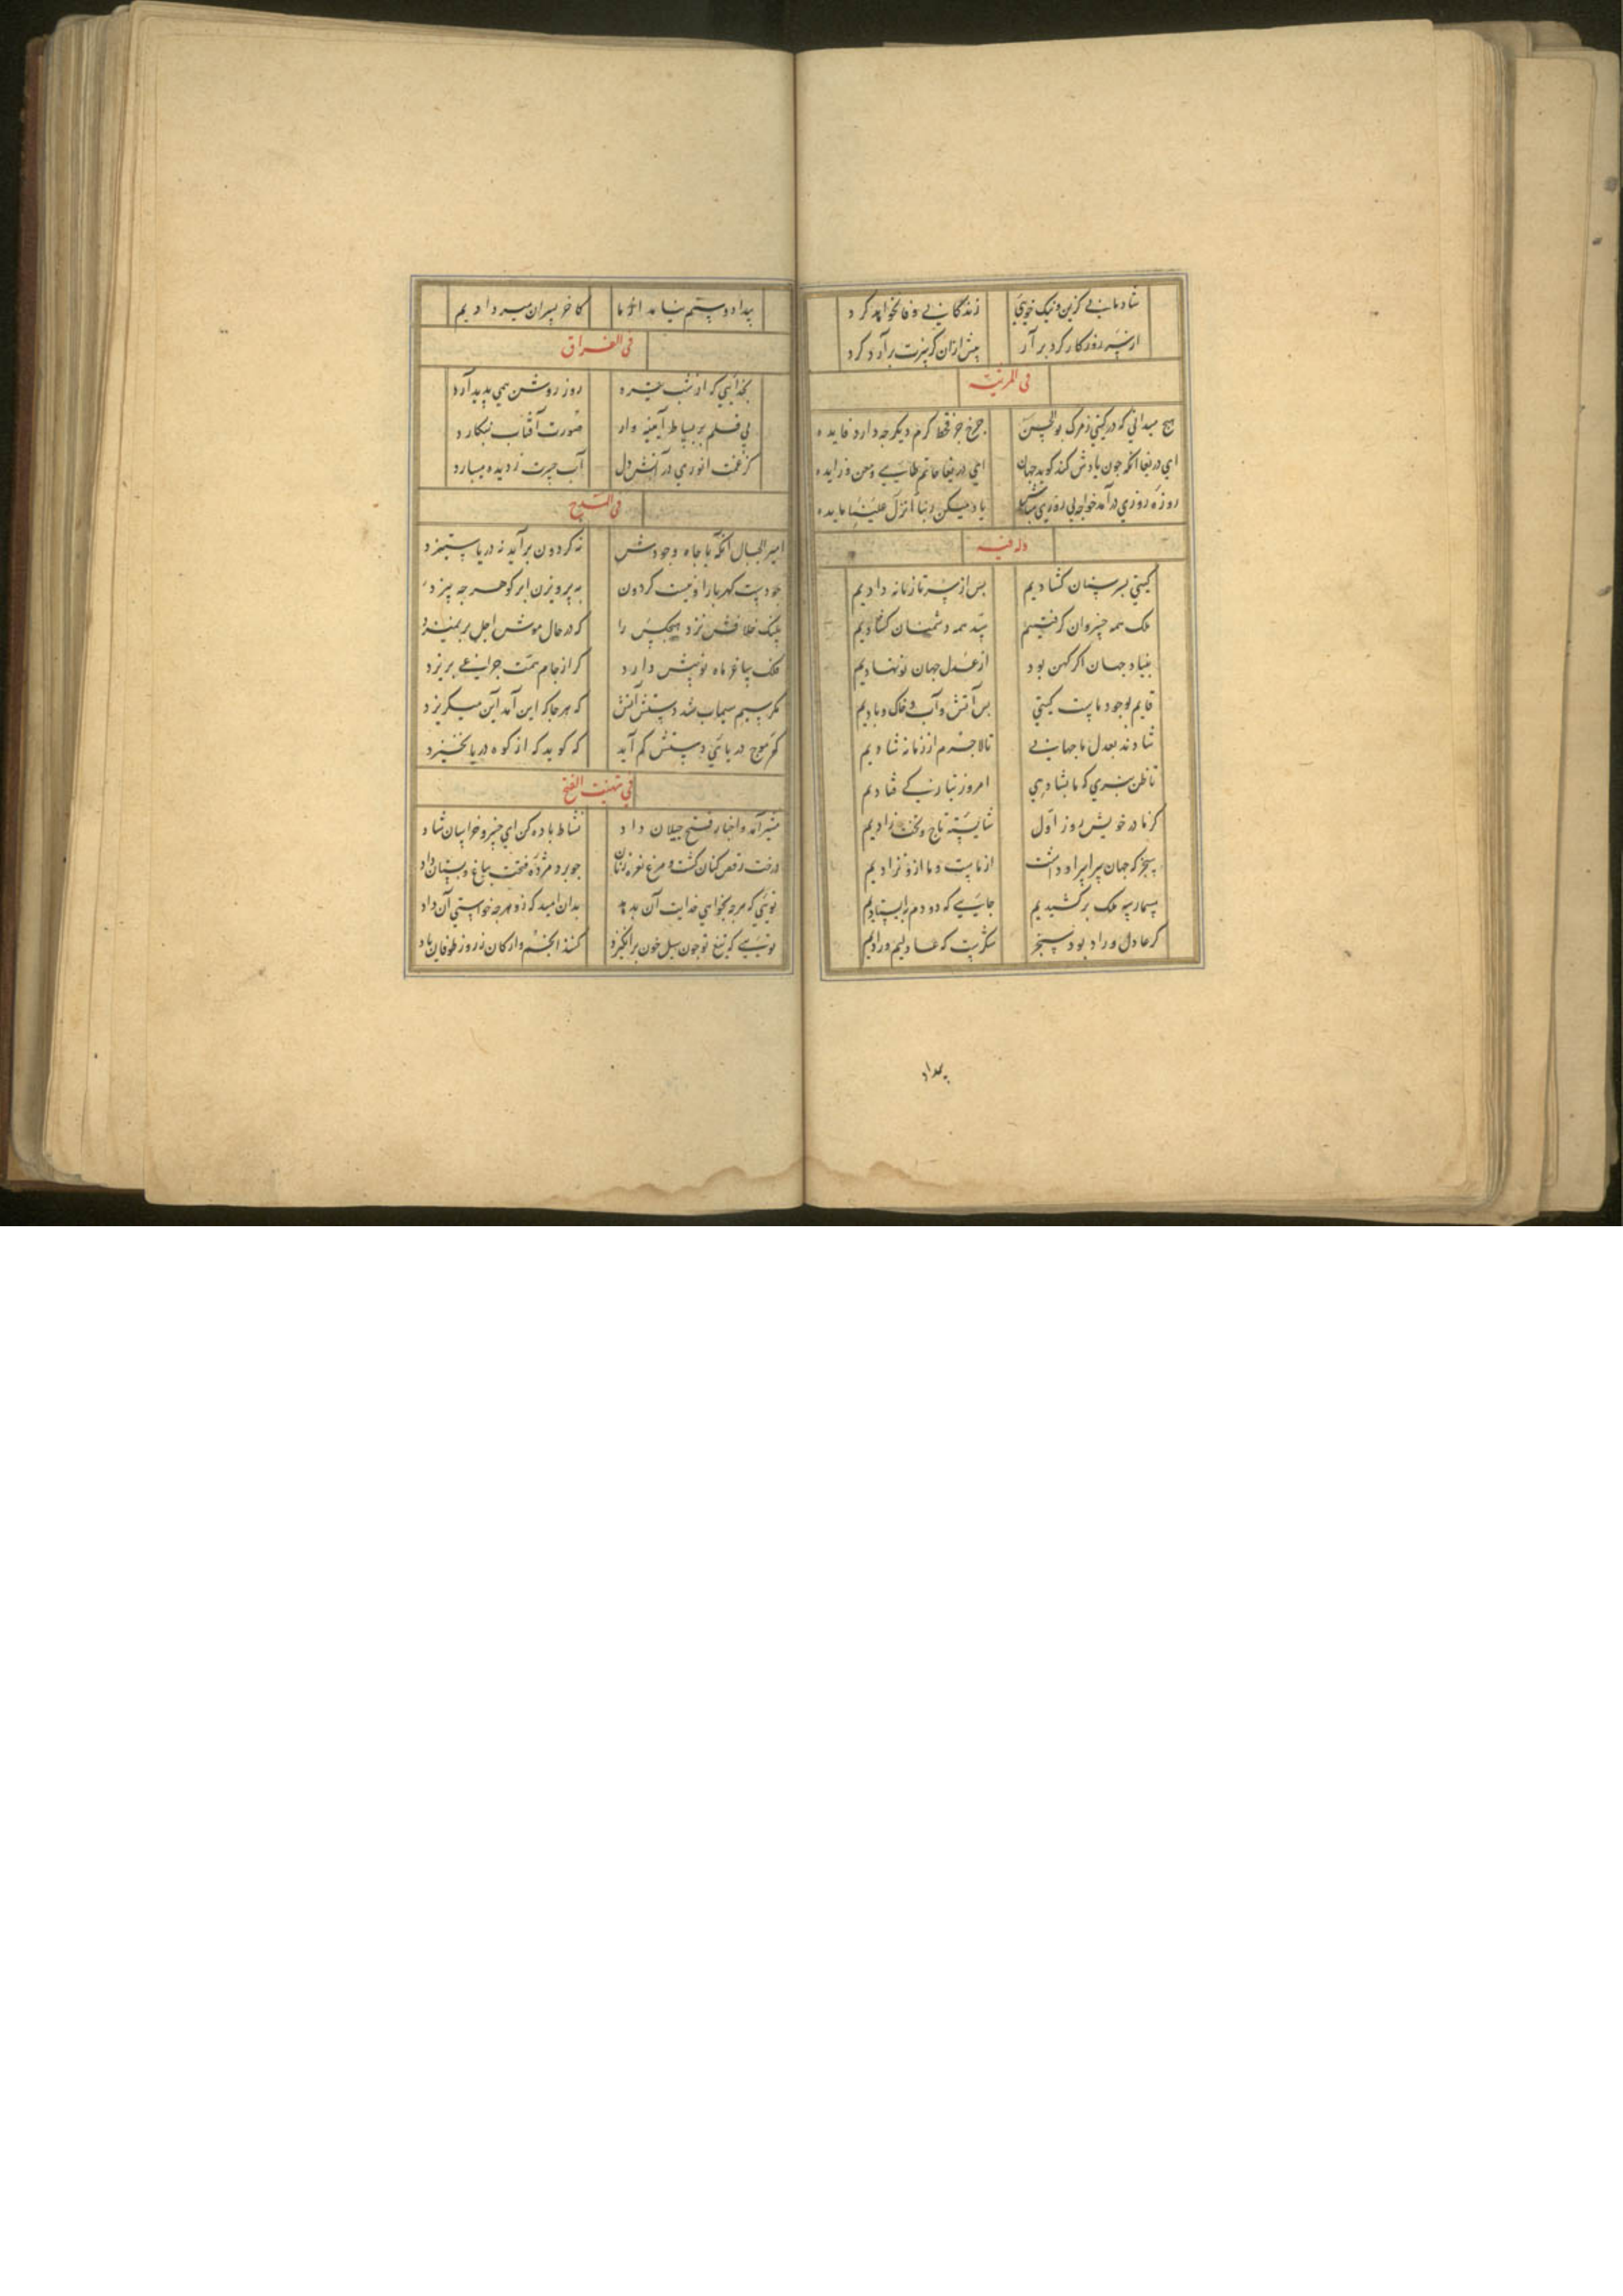 شادمانی گزین و نیک خویی زندگانی وفا نخواهد کرد
از سر روزگار گرد برآر پیش ازان کز سرت برآرد گرد
فی المرثیه
هیچ میدانی که در گیتی ز مرگ بوالحسن چرخ جز قحط کرم دیگر چه دارد فایده
ای دریغا آنکه چون یادش کند گوید جهان ای دریغا حاتم طایی و معن زایده
روزه روزی درآمد خواجه بی روزی یاد میکن ربنا انزل علینا مایده
وله فیه
گیتی بسر سنان گشادیم پس از سر تازیانه دادیم
ملک همه خسروان گرفتیم سد همه دشمنان گشادیم
بنیاد جهان اگر کهن بود از عدل جهان نو نهادیم
قایم بوجود ماست گیتی پس آتش و آب و خاک و بادیم
شادند بعدل ما جهانی تا لاجرم از زمانه شادیم
تا ظن نبری که ما بشاهی امروز بتازگی فتادیم
کز مادر خویش روز اول شایسته تاج و تخت زادیم
سنجر که جهان سراسر او داشت از ماست و ما ازو نژادیم
سمار سپه ملک برکشیدیم جایی که دو دم بایستادیم
گر عادل و راد بود سنجر شکرست که عادلیم و رادیم
بیداد
بیداد و ستم نیاید از ما کاخر پسران میر دادیم
فی الفراق
بخدایی که از شب تیره روز روشن همی پدید آرد
بی قلم بر بساط آینه وار صورت آفتاب بنگارد
کز غمت انوری در آتش دل آب حسرت ز دیده میبارد
فی المدح
امیر الجبال آنکه با جاه و جودش نه گردون برآید نه دریا ستیزد
جودست گهربار او نیست گردون به پرویزن ابر گوهر چه بیزد
پلنگ خلافش نزد هیچکس را که در حال موش اجل بر نمیزد
فلک ساغر ماه نو پیش دارد گر از جام همت جراعی بریزد
مگر سیم سیماب شد دستش آتش که هرجا که این آمد آن میگریزد
کز موج دریایی دستش کم آید که گوید که از کوه دریا نخیزد
فی تهنیت الفتح
مبشر آمد و اخبار فتح جیلان داد نشاط باده کن ای خسرو خراسان شاد
درخت رقص کنان گشت و مرغ نعره زنان چو برد مژده فتحت بباغ و بستان داد
تویی که هرچه بخواهی خدایت آن بدهد بدان امید که زو هرچه خواستی آن داد
تویی که تیغ تو چون سیل خون برانگیزد کنند انجم و ارکان ز روز طوفان یاد